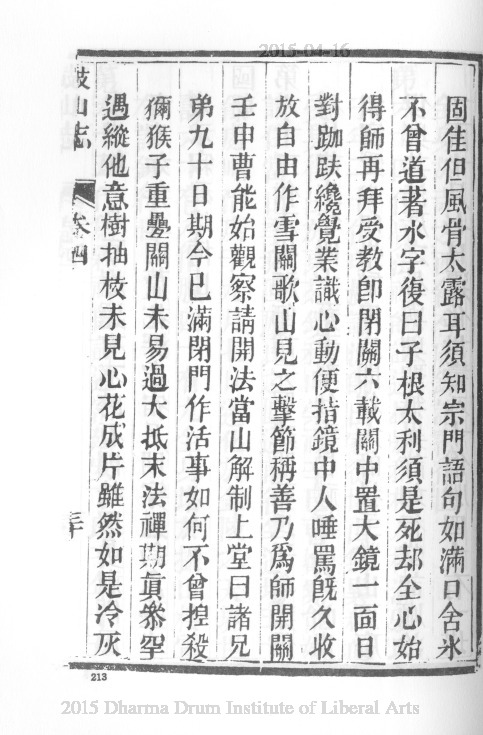 2015-04-16
固佳但風骨太露耳須知宗門語句如滿口含氷
不曾道著水字復曰子根太利須是死却全心始
得師再拜受教卽閉關六載關中置大鏡一面日
對跏趺纔覺業識心動便指鏡中人唾罵旣久收
放自由作雪關歌山見之擊節稱善乃爲師開關
壬申曹能始觀察請開法當山解制上堂曰諸兄
弟九十日期今已滿閉門作活事如何不曾揑殺
獼猴子重疊關山未易過大抵末法禪期眞叅罕
遇縱他意樹抽枝未見心花成片雖然如是冷灰
鼓山志 卷四 三十
213
2015 Dharma Drum Institute of Liberal Arts